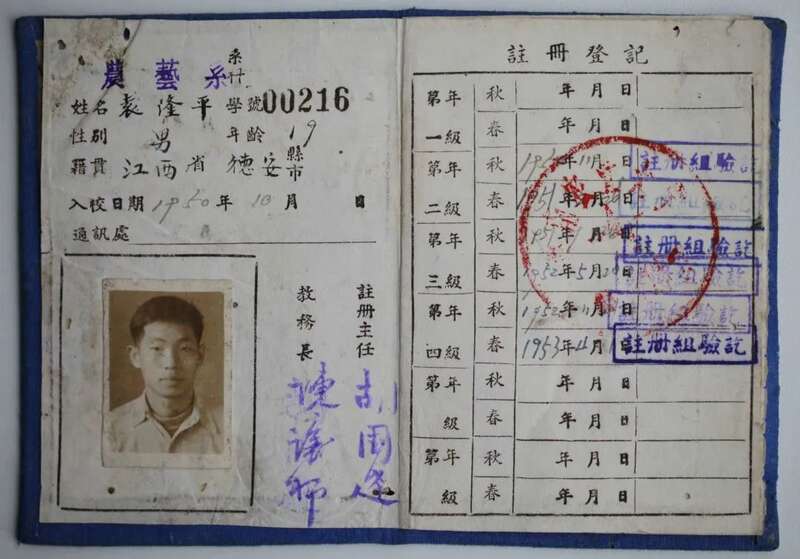 農藝系
系科
姓名 袁隆平 學號 00216
性別 男 年齡 19
籍貫 江西省德安縣市
入校日期 1950年10月 日
通訊處
註冊主任
教務長
註冊登記
第一年級 秋 年月日
春 年月日
第二年級 秋 年11月日 註册組驗訖
春 1951年 月 日 註册組驗訖
第三年級 秋 1951年 月 日 註册組驗訖
春 1952年5月 日 註册組驗訖
第四年級 秋 1952年 月 日 註册組驗訖
春 1953年 月 日 註册組驗訖
第年級 秋 年月日
春 年月日
第年級 秋 年月日
春 年月日